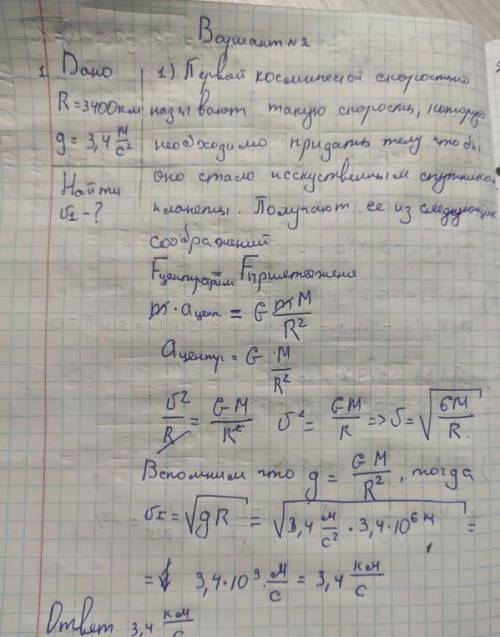 Вариант №2
1. Дано 1) Первой космической скоростью
R = 3400 км называют такую скорость, которую
g = 3,4 м/с² необходимо придать телу чтобы
Найти оно стало исскуственным спутником
υI - ? планеты. Получают её из следующих
соображений
Fцентрострем = Fпритяжения
m · aцент = G mM/R²
aцентр = G · M/R²
υ²/R = GM/R² υ² = GM/R => υ = √(GM/R)
Вспомним что g = GM/R², тогда
υI = √gR = √(3,4 м/с² · 3,4 · 10⁶ м) =
= 3,4 · 10³ · м/с = 3,4 км/с
Ответ 3,4 км/с